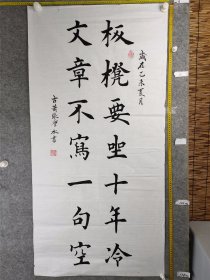 歲在乙未夏月
板櫈要坐十年冷
文章不寫一句空
書